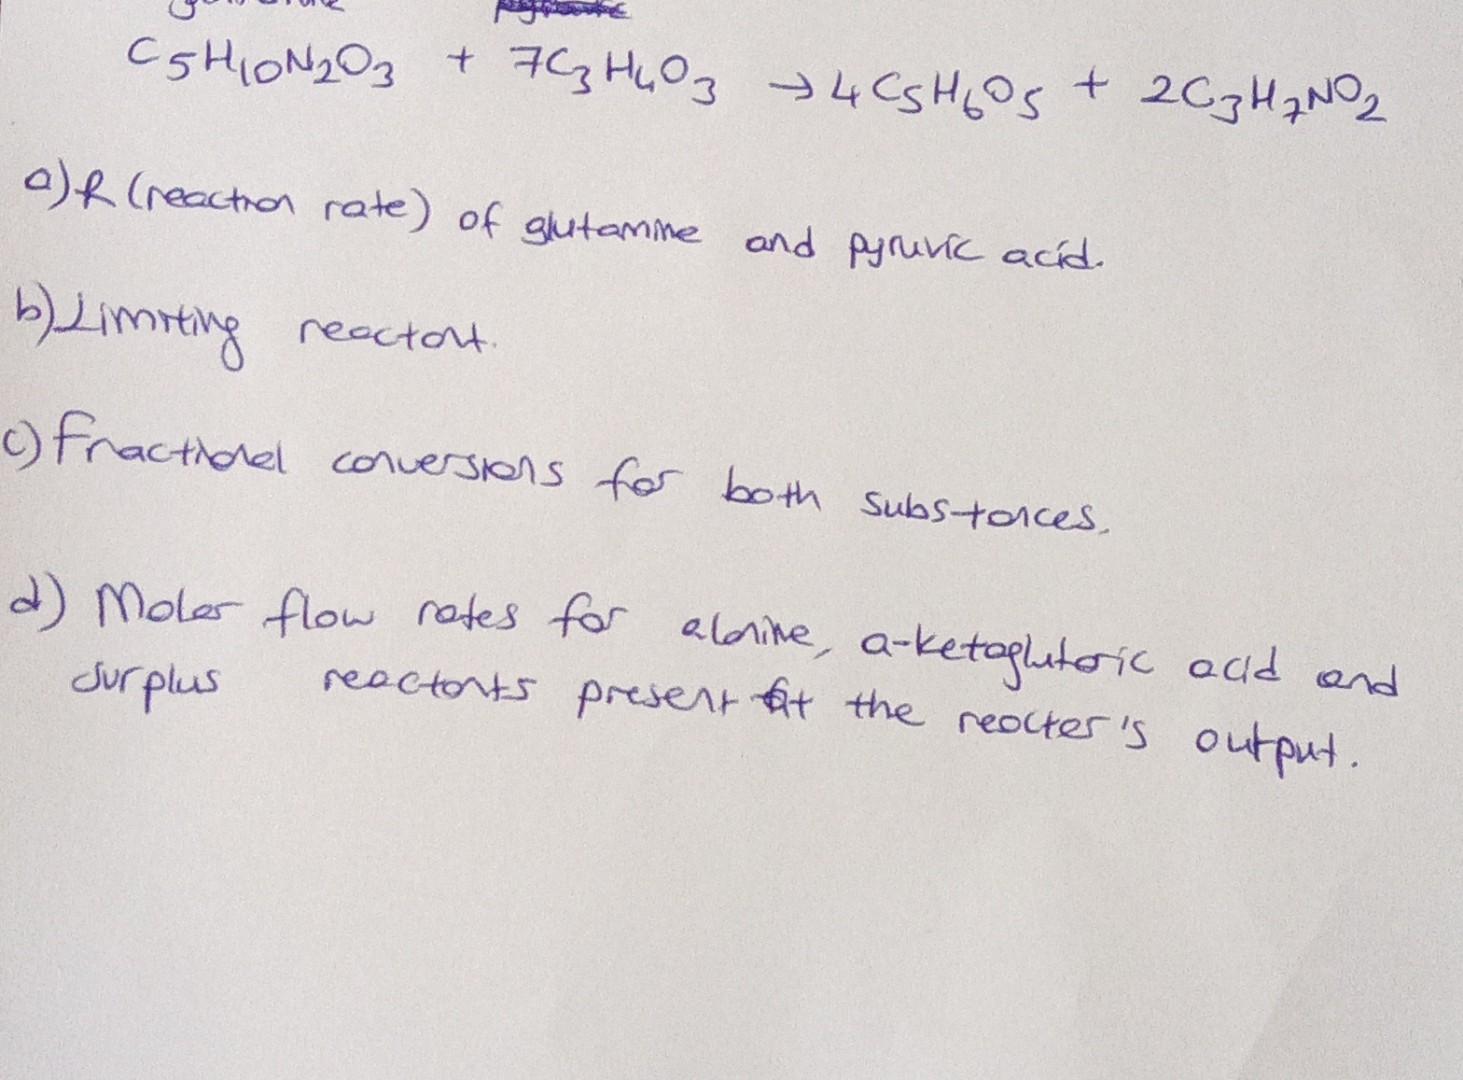 C5H10N2O3 + 7C3H4O3 → 4C5H6O5 + 2C3H7NO2
a) R (reaction rate) of glutamine and pyruvic acid.
b) Limiting reactant.
c) Fractional conversions for both substances.
d) Molar flow rates for alanine, a-ketoglutaric acid and
surplus reactants present at the reactor's output.